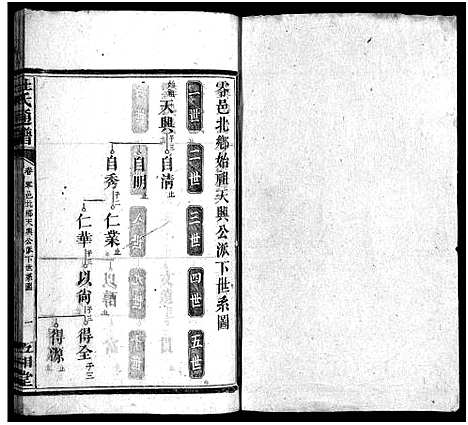 零邑北鄉始祖天興公派下世系圖
一世
二世
三世
四世
五世
始祖天興子三
自清止
自明
自秀子二
仁業止
仁華子一
以尙子二
得全子三
得源止
杜氏通譜
卷 零邑北鄉天興公派下世系圖
一
五相堂